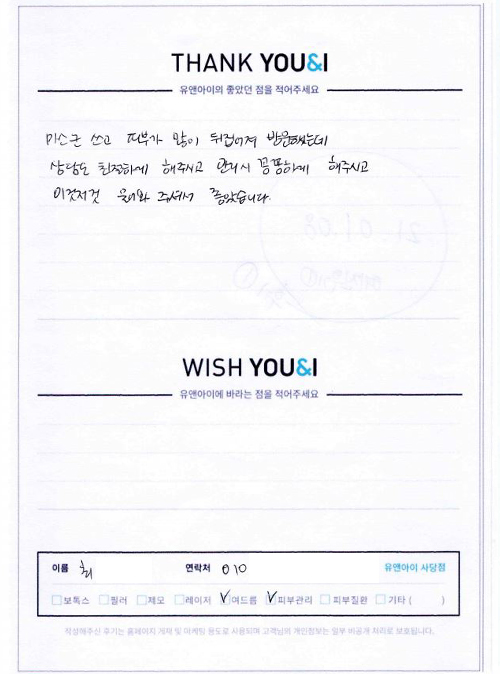 THANK YOU&I
유앤아이의 좋았던 점을 적어주세요
마스크 쓰고 피부가 많이 뒤집어져 방문했는데
상담도 친절하게 해주시고 관리시 꼼꼼하게 해주시고
이것저것 물어봐 주셔서 좋았습니다.
WISH YOU&I
유앤아이에 바라는 점을 적어주세요
이름 최 연락처 010 유앤아이 사당점
보톡스 필러 제모 레이저 여드름 피부관리 피부질환 기타 ( )
작성해주신 후기는 홈페이지 게재 및 마케팅 용도로 사용되며 고객님의 개인정보는 일부 비공개 처리로 보호됩니다.